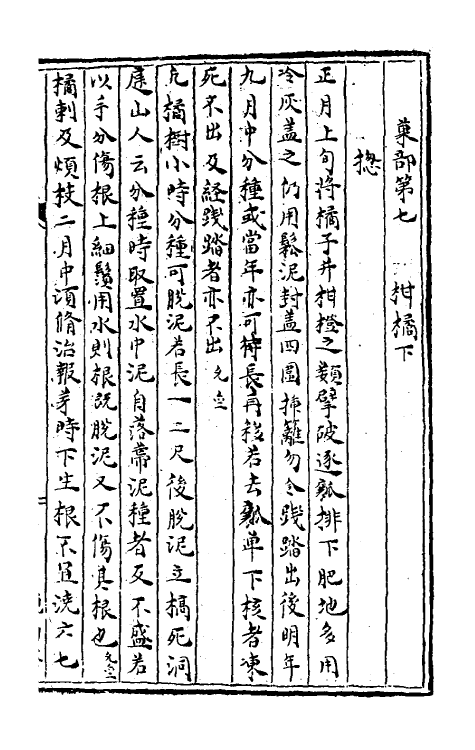 菓部第七　　柑橘下
揔
正月上旬將橘子并柑橙之類擘破逐瓤排下肥地多用
冷灰盖之仍用鬆泥封盖四圍揷籬勿令踐踏出後明年
九月中分種或當年亦可待長再移若去瓤单下核者凍
死不出及経踐踏者亦不出
凢橘樹小時分種可脫泥若長一二尺後脫泥立槁死洞
庭山人云分種時取置水中泥自落帶泥種者反不盛若
以手分傷根上細鬚用水則根既脫泥又不傷其根也
橘剌及煩枝二月中須脩治報芽時下生根不宜澆六七